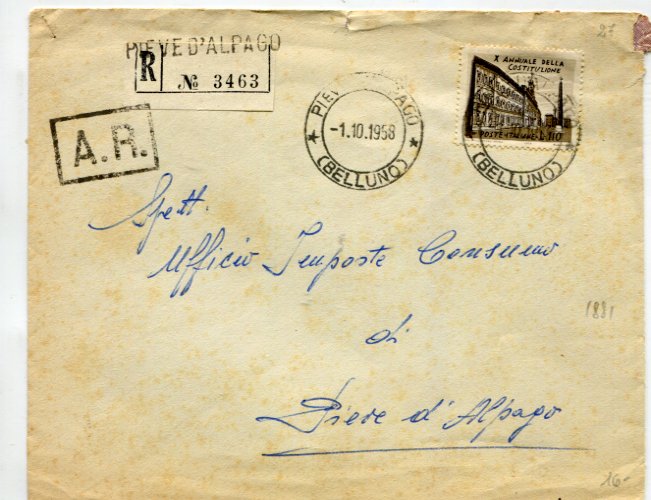 27
PIEVE D'ALPAGO
R
№ 3463
A.R.
PIEVE D'ALPAGO
-1.10.1958
(BELLUNO)
X ANNUALE DELLA
COSTITUZIONE
POSTE ITALIANE L.110
(BELLUNO)
Spett.
Ufficio Imposte Consumo
di
Pieve d'Alpago
1881
16-